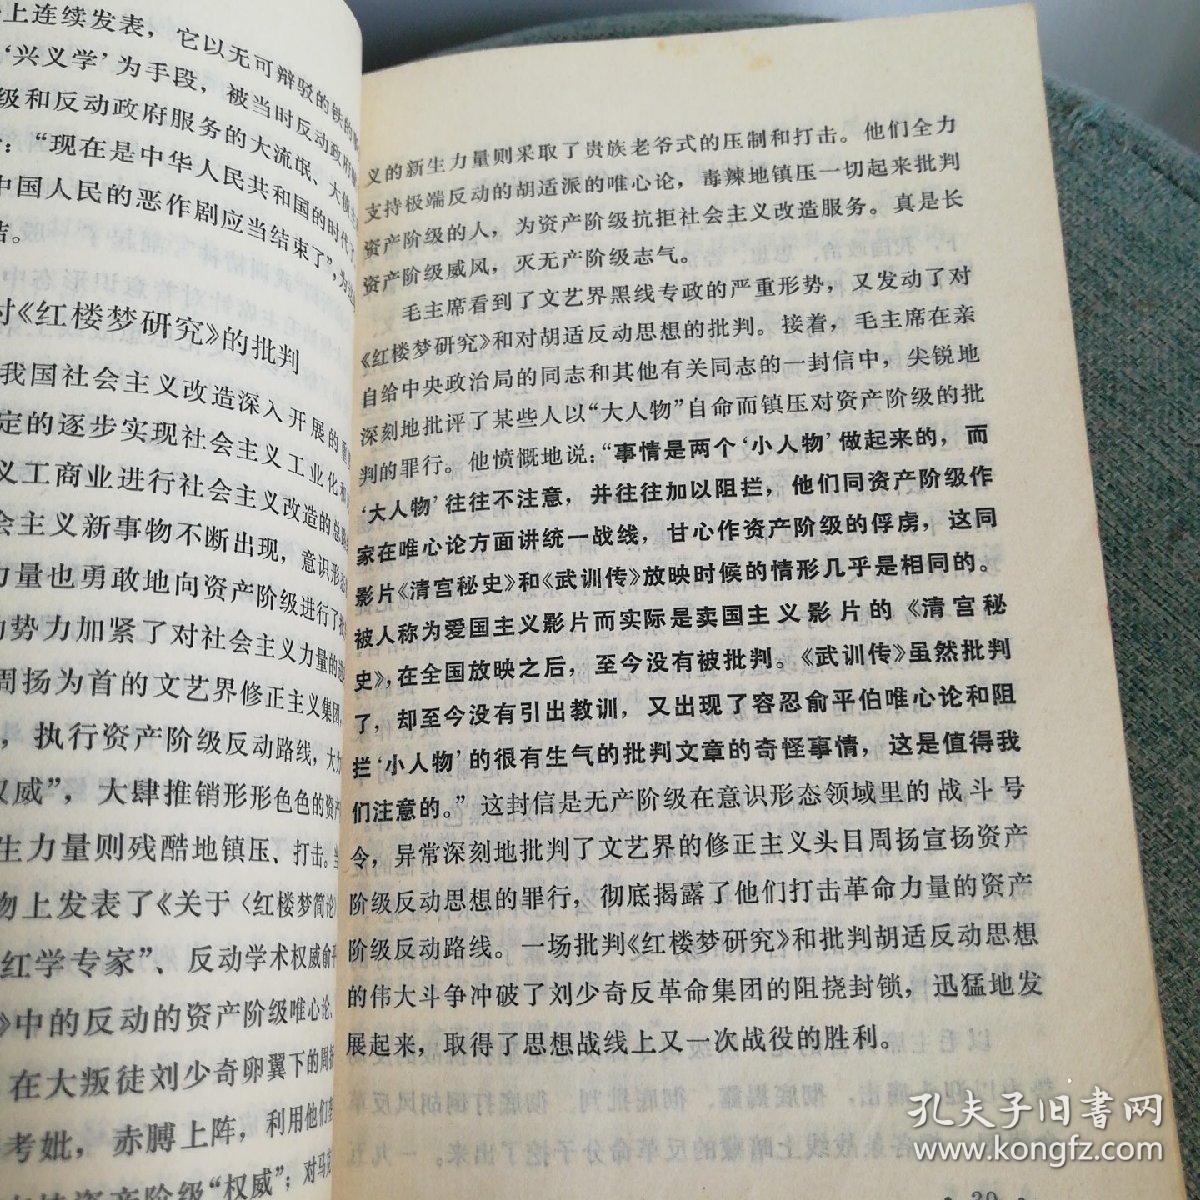 上连续发表，它以无可辩驳的铁的
‘兴义学’为手段，被当时反动政府
级和反动政府服务的大流氓、大债
：“现在是中华人民共和国的时代了
中国人民的恶作剧应当结束了”，为
结。
对《红楼梦研究》的批判
我国社会主义改造深入开展的重
定的逐步实现社会主义工业化和
义工商业进行社会主义改造的总
会主义新事物不断出现，意识形态
力量也勇敢地向资产阶级进行了
动势力加紧了对社会主义力量的
周扬为首的文艺界修正主义集团，
，执行资产阶级反动路线，大力
权威”，大肆推销形形色色的资产
生力量则残酷地镇压、打击。当
物上发表了《关于〈红楼梦简论〉
“红学专家”、反动学术权威俞平
》中的反动的资产阶级唯心论、
在大叛徒刘少奇卵翼下的周扬
考妣，赤膊上阵，利用他们
资产阶级“权威”；对马克
义的新生力量则采取了贵族老爷式的压制和打击。他们全力
支持极端反动的胡适派的唯心论，毒辣地镇压一切起来批判
资产阶级的人，为资产阶级抗拒社会主义改造服务。真是长
资产阶级威风，灭无产阶级志气。
毛主席看到了文艺界黑线专政的严重形势，又发动了对
《红楼梦研究》和对胡适反动思想的批判。接着，毛主席在亲
自给中央政治局的同志和其他有关同志的一封信中，尖锐地
深刻地批评了某些人以“大人物”自命而镇压对资产阶级的批
判的罪行。他愤慨地说：“事情是两个‘小人物’做起来的，而
‘大人物’往往不注意，并往往加以阻拦，他们同资产阶级作
家在唯心论方面讲统一战线，甘心作资产阶级的俘虏，这同
影片《清宫秘史》和《武训传》放映时候的情形几乎是相同的。
被人称为爱国主义影片而实际是卖国主义影片的《清宫秘
史》，在全国放映之后，至今没有被批判。《武训传》虽然批判
了，却至今没有引出教训，又出现了容忍俞平伯唯心论和阻
拦‘小人物’的很有生气的批判文章的奇怪事情，这是值得我
们注意的。”这封信是无产阶级在意识形态领域里的战斗号
令，异常深刻地批判了文艺界的修正主义头目周扬宣扬资产
阶级反动思想的罪行，彻底揭露了他们打击革命力量的资产
阶级反动路线。一场批判《红楼梦研究》和批判胡适反动思想
的伟大斗争冲破了刘少奇反革命集团的阻挠封锁，迅猛地发
展起来，取得了思想战线上又一次战役的胜利。
孔夫子旧书网
www.kongfz.com